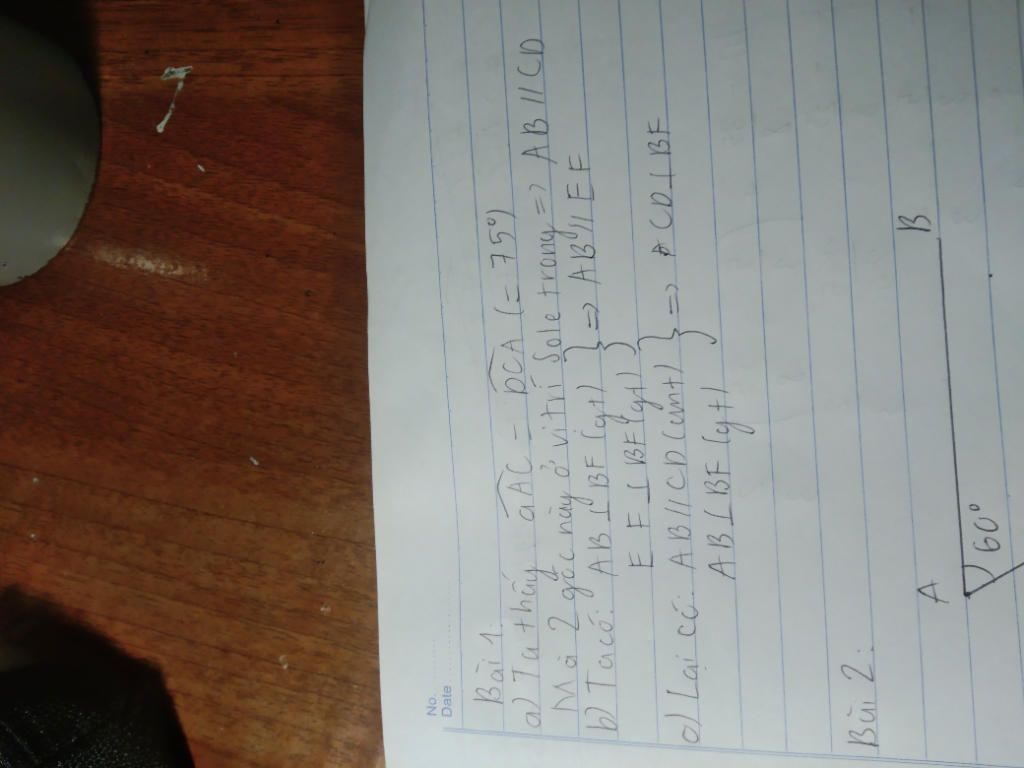 No.
Date
Bài 1.
a) Ta thấy aAC = DCA (= 75°)
Mà 2 góc này ở vị trí sole trong => AB // CD
b) Ta có: AB ⊥ BF (gt) } => AB // EF
EF ⊥ BF (gt)
c) Lại có: AB // CD (cmt) } => CD ⊥ BF
AB ⊥ BF (gt)
Bài 2:
A B
60°